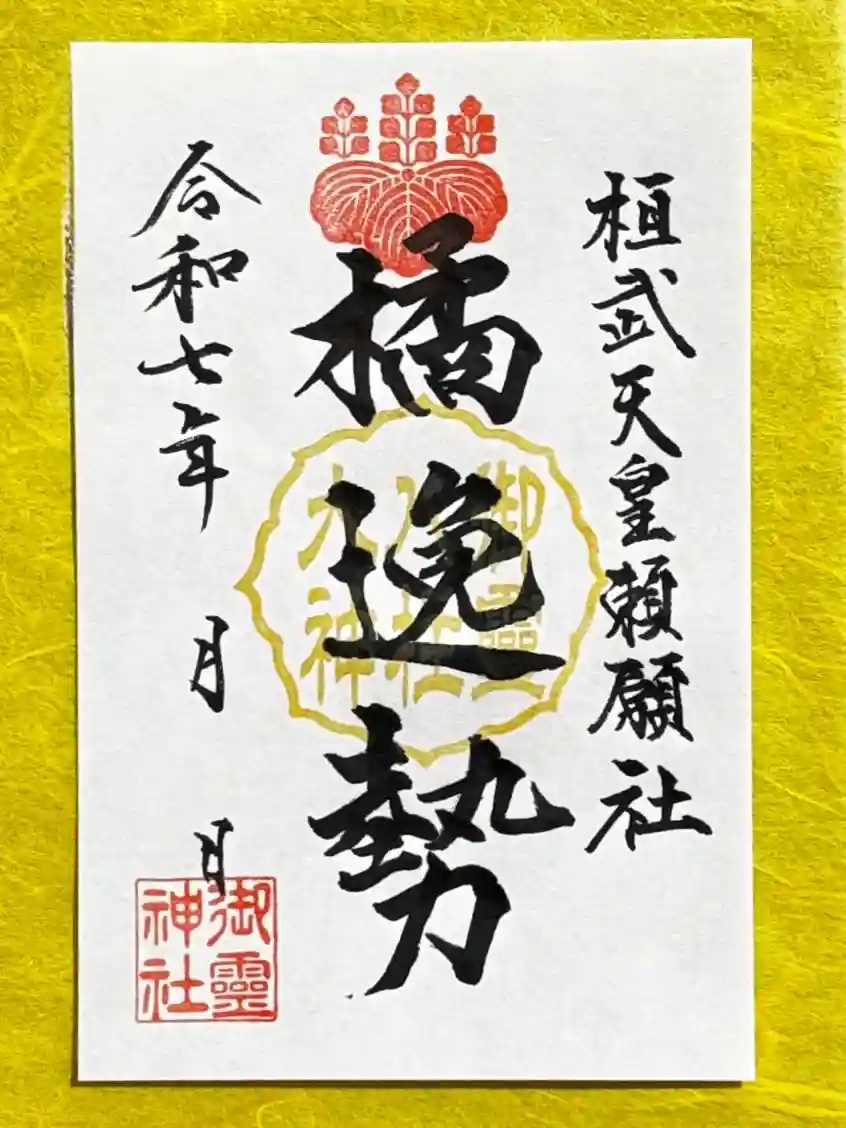 桓武天皇頼願社
橘逸勢
御霊
八社
大神
令和七年　月　日
御霊
神社